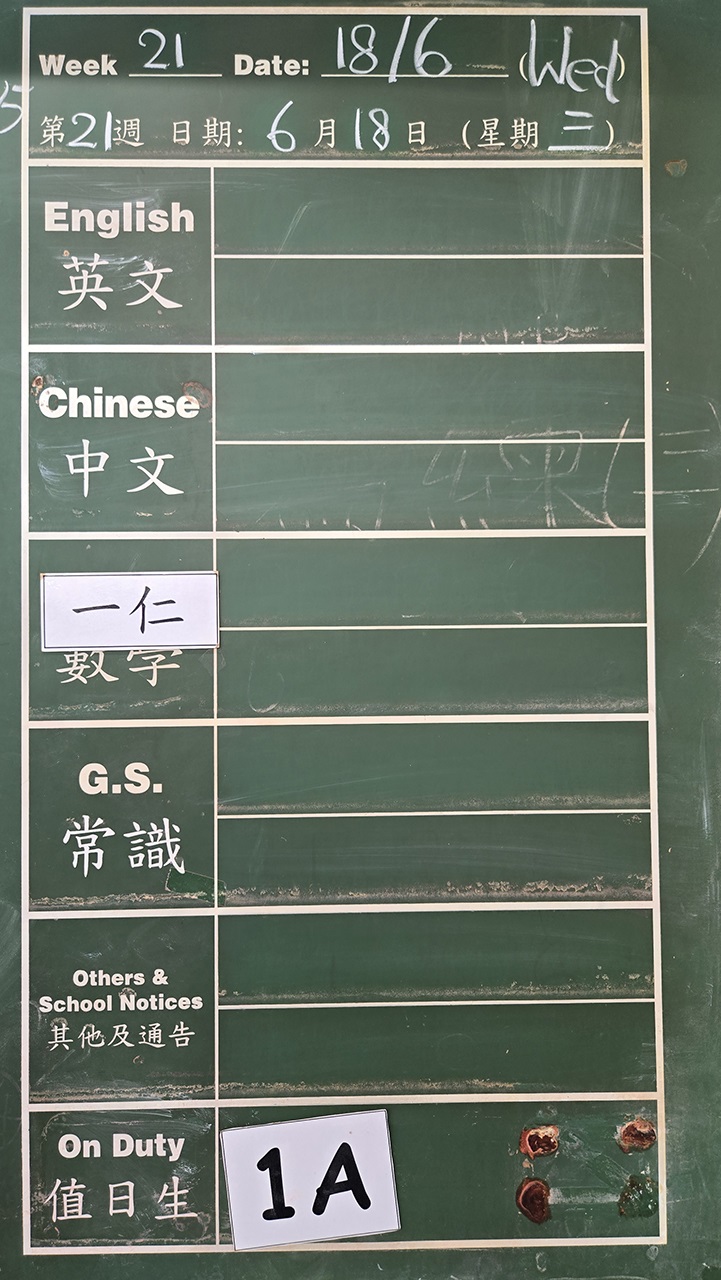 Week 21 Date: 18/6 (Wed)
第21週 日期: 6月18日 (星期三)
English
英文
Chinese
中文
一仁
數學
G.S.
常識
Others &
School Notices
其他及通告
On Duty
值日生
1A